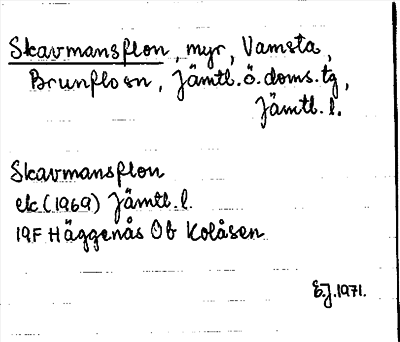 Skavmansflon, myr, Vamsta,
Brunflo sn, Jämtl. ö. doms. tg,
Jämtl. l.
Skavmansflon
ek (1969) Jämtl. l.
19F Häggenås Ob Kolåsen
E.J. 1971.